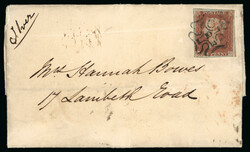 Mrs Hannah Bowes
17 Lambeth Road